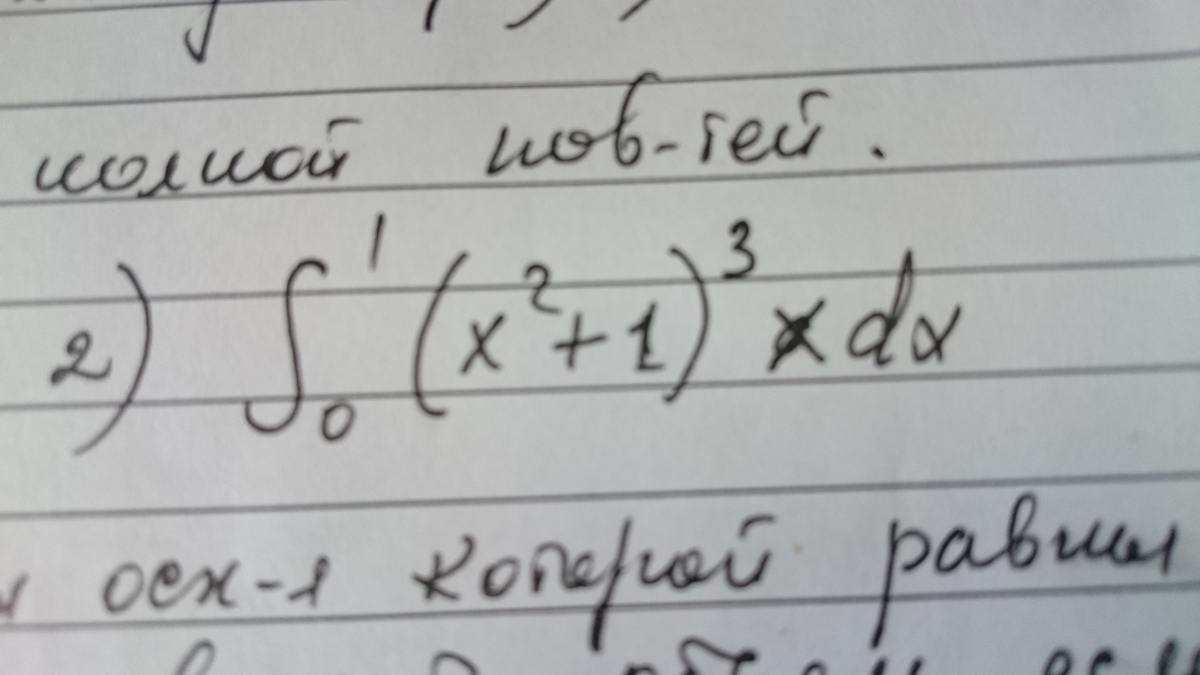 полной пов-тей.
2) ∫₀¹ (x²+1)³ x dx
осн-я которой равны